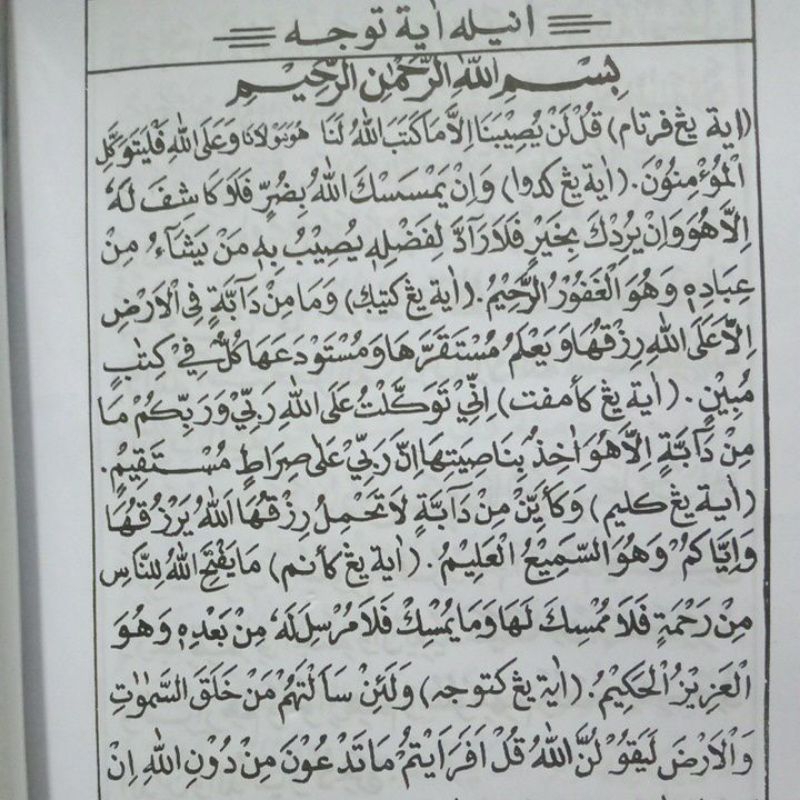 انيله اٰية توجه
بِسْــمِ اللّٰهِ الرَّحْمٰنِ الرَّحِيْـمِ
(اٰية يڠ فرتام) قُلْ لَنْ يُصِيْبَنَا اِلَّا مَا كَتَبَ اللّٰهُ لَنَا هُوَ مَوْلَانَا وَعَلَى اللّٰهِ فَلْيَتَوَكَّلِ
الْمُؤْمِنُوْنَ. (اٰية يڠ كدوا) وَاِنْ يَمْسَسْكَ اللّٰهُ بِضُرٍّ فَلَا كَاشِفَ لَهٗ
اِلَّا هُوَ وَاِنْ يُرِدْكَ بِخَيْرٍ فَلَا رَآدَّ لِفَضْلِهٖ يُصِيْبُ بِهٖ مَنْ يَشَآءُ مِنْ
عِبَادِهٖ وَهُوَ الْغَفُوْرُ الرَّحِيْمُ. (اٰية يڠ كتيك) وَمَا مِنْ دَآبَّةٍ فِى الْاَرْضِ
اِلَّا عَلَى اللّٰهِ رِزْقُهَا وَيَعْلَمُ مُسْتَقَرَّهَا وَمُسْتَوْدَعَهَا كُلٌّ فِيْ كِتٰبٍ
مُبِيْنٍ. (اٰية يڠ كأمفت) اِنِّيْ تَوَكَّلْتُ عَلَى اللّٰهِ رَبِّيْ وَرَبِّكُمْ مَا
مِنْ دَآبَّةٍ اِلَّا هُوَ اٰخِذٌ بِنَاصِيَتِهَا اِنَّ رَبِّيْ عَلٰى صِرَاطٍ مُسْـتَقِيْمٍ.
(اٰية يڠ كليم) وَكَأَيِّنْ مِنْ دَآبَّةٍ لَا تَحْمِلُ رِزْقَهَا اَللّٰهُ يَرْزُقُهَا
وَاِيَّاكُمْ وَهُوَ السَّمِيْعُ الْعَلِيْمُ. (اٰية يڠ كأنم) مَا يَفْتَحِ اللّٰهُ لِلنَّاسِ
مِنْ رَحْمَةٍ فَلَا مُمْسِكَ لَهَا وَمَا يُمْسِكْ فَلَا مُرْسِلَ لَهٗ مِنْ بَعْدِهٖ وَهُوَ
الْعَزِيْزُ الْحَكِيْمُ. (اٰية يڠ كتوجه) وَلَئِنْ سَاَلْتَهُمْ مَنْ خَلَقَ السَّمٰوٰتِ
وَالْاَرْضَ لَيَقُوْلُنَّ اللّٰهُ قُلْ اَفَرَاَيْتُمْ مَا تَدْعُوْنَ مِنْ دُوْنِ اللّٰهِ اِنْ